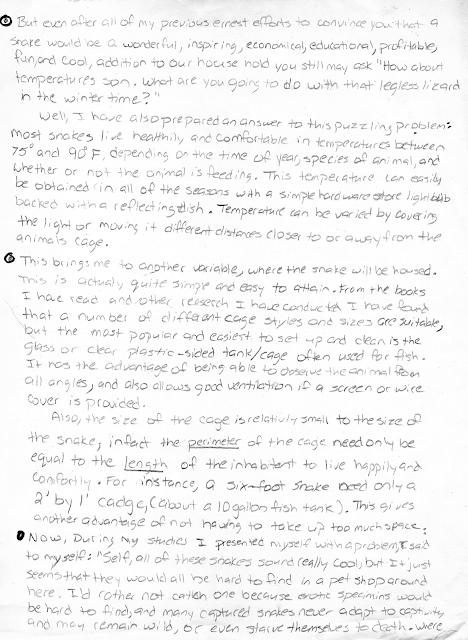 But even after all of my previous ernest efforts to convince you that a
snake would be a wonderful, inspiring, economical, educational, profitable,
fun, and cool, addition to our house hold you still may ask "How about
temperatures son. What are you going to do with that legless lizard
in the winter time?"
Well, I have also prepared an answer to this puzzling problem:
most snakes live healthily, and comfortable in temperatures between
75° and 90° F, depending on the time of year, species of animal, and
whether or not the animal is feeding. This temperature can easily
be obtained in all of the seasons with a simple hardware store light bulb
backed with a reflecting dish. Temperature can be varied by covering
the light or moving it different distances closer to or away from the
animals cage.
This brings me to another variable, where the snake will be housed.
This is actually quite simple and easy to attain. From the books
I have read and other research I have conducted I have found
that a number of different cage styles and sizes are suitable,
but the most popular and easiest to set up and clean is the
glass or clear plastic-sided tank/cage often used for fish.
It has the advantage of being able to observe the animal from
all angles, and also allows good ventilation if a screen or wire
cover is provided.
Also, the size of the cage is relativly small to the size of
the snake, infact the perimeter of the cage need only be
equal to the length of the inhabitent to live happily and
comfortly. For instance, a six-foot snake need only a
2' by 1' cadge, (about a 10 gallon fish tank). This gives
another advantage of not having to take up too much space.
Now, During my studies I presented myself with a problem, I said
to myself: "Self, all of these snakes sound really cool, but it just
seems that they would all be hard to find in a pet shop around
here. I'd rather not catch one because exotic specimins would
be hard to find, and many captured snakes never adapt to captivity
and may remain wild, or even starve themselves to death. where